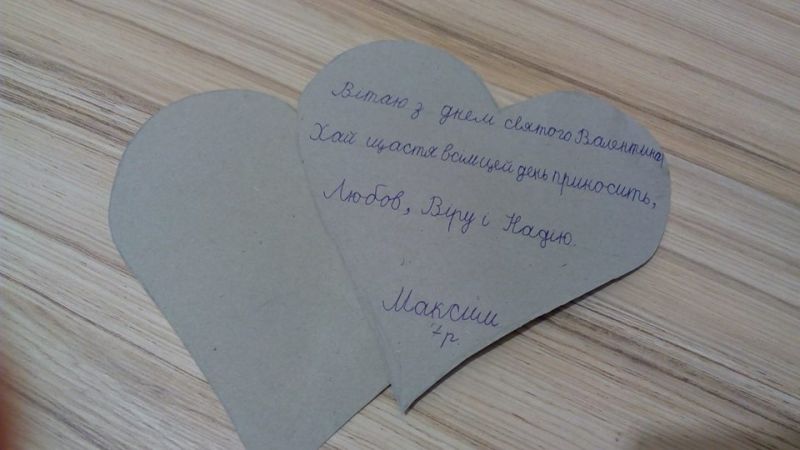 Вітаю з днем святого Валентина,
Хай щастя всім цей день приносить,
Любов, Віру і Надію.
Максім
7 р.